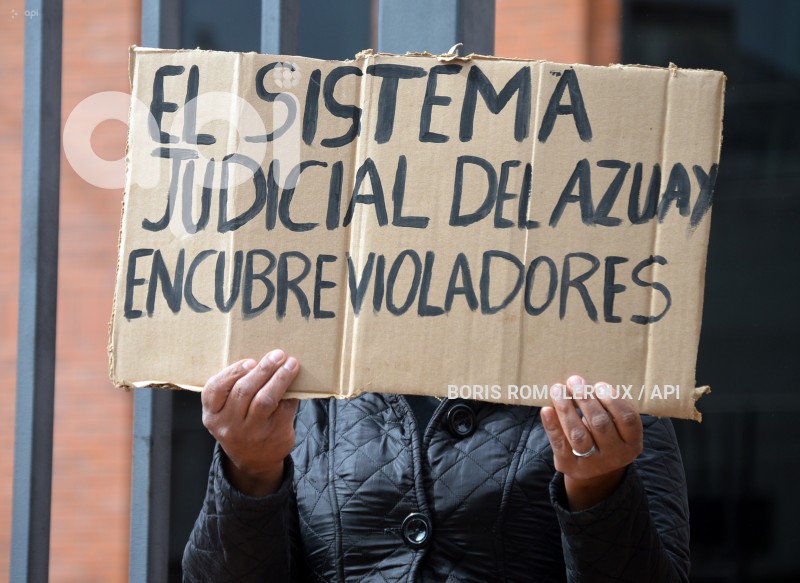 api
EL SISTEMA
JUDICIAL DEL AZUAY
ENCUBRE VIOLADORES
api
BORIS ROMOLEROUX / API